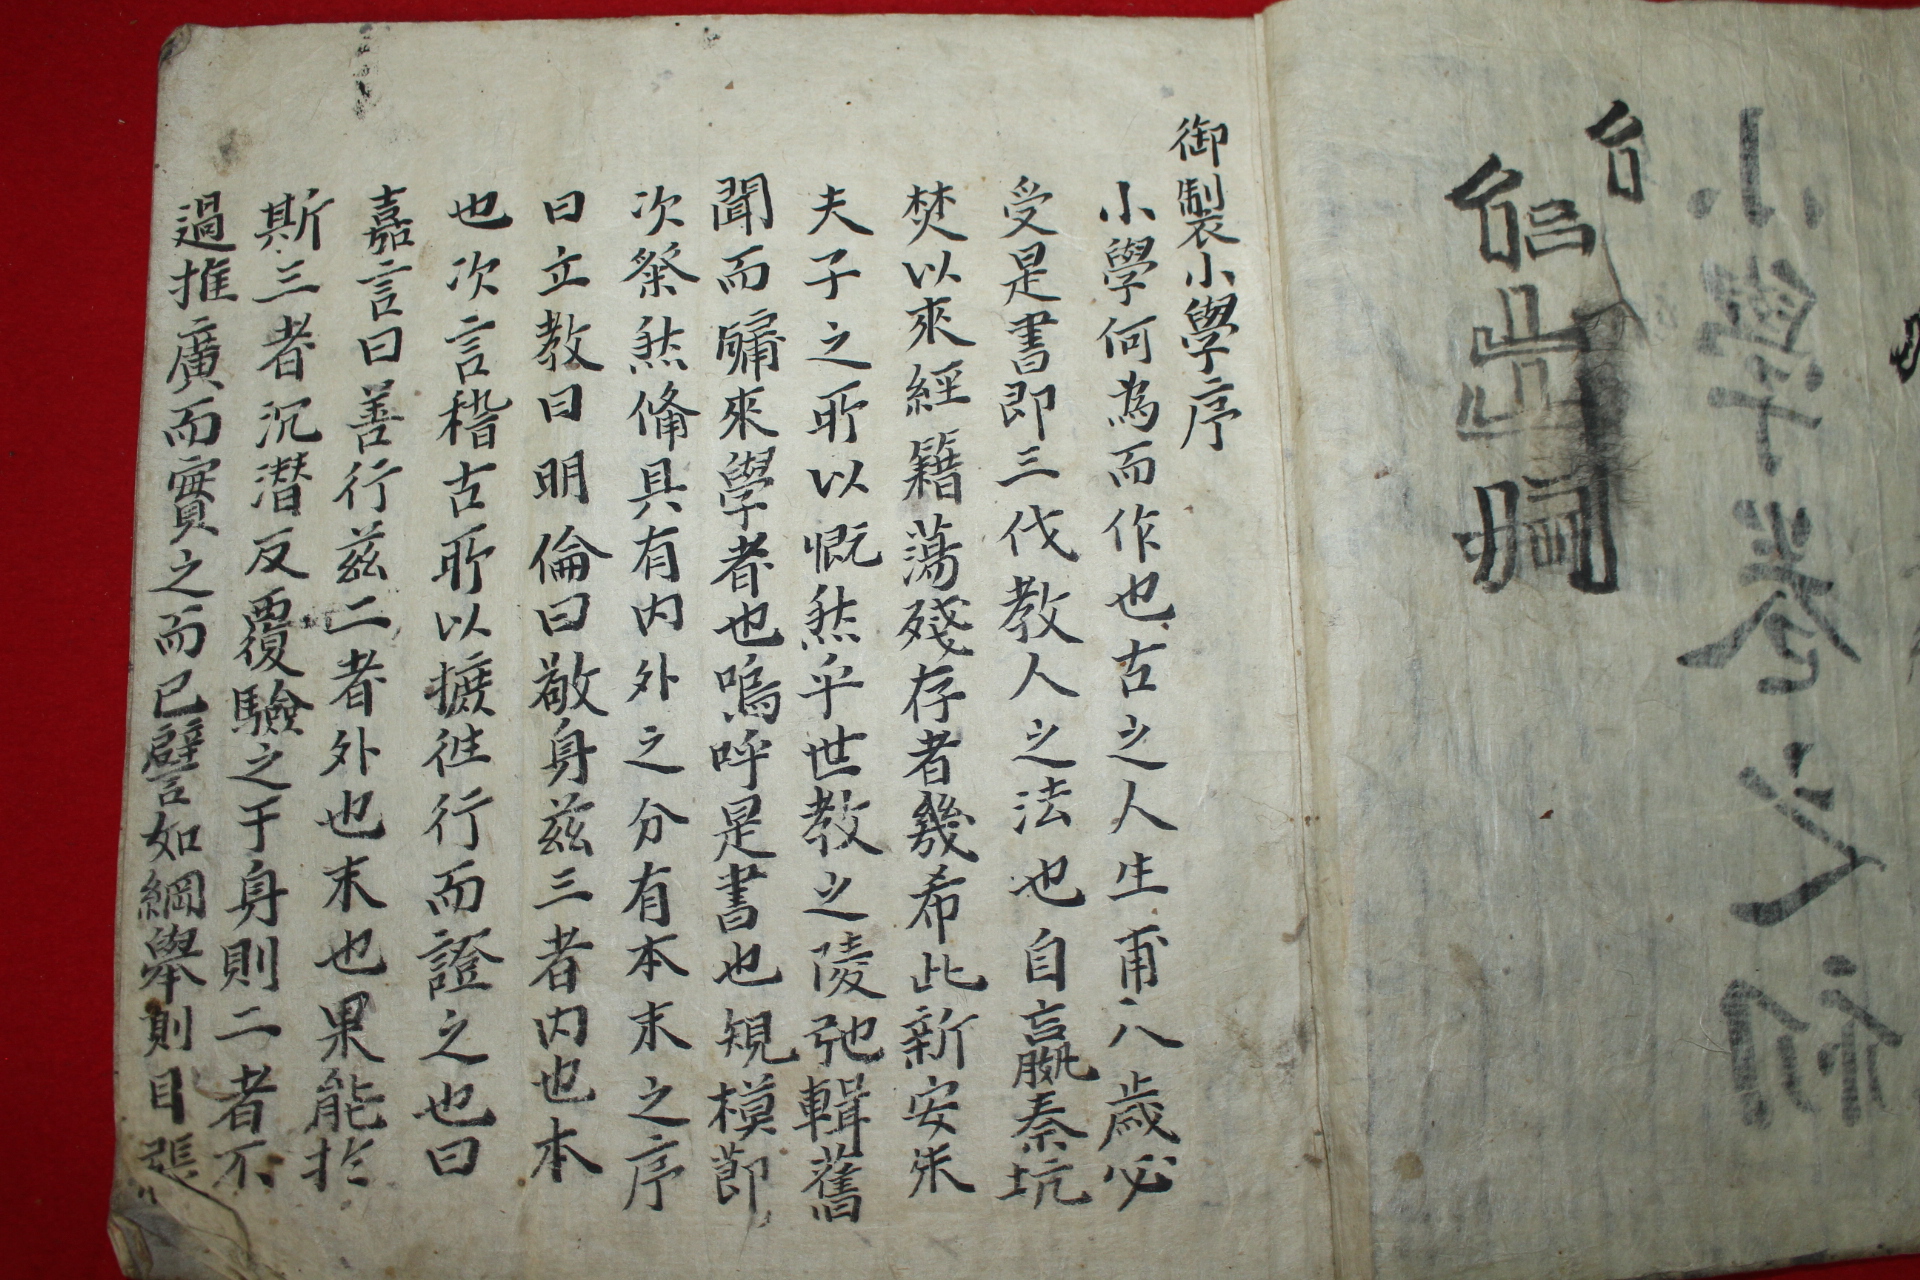 御製小學序
小學何為而作也古之人生甫八歲必
受是書即三代教人之法也自嬴秦坑
焚以來經籍蕩殘存者幾希此新安朱
夫子之所以慨然乎世教之陵弛輯舊
聞而牖來學者也嗚呼是書也規模節
次粲然俻具有內外之分有本末之序
曰立教曰明倫曰敬身玆三者內也本
也次言稽古所以摭徃行而證之也曰
嘉言曰善行玆二者外也末也果能扵
斯三者沉潜反覆驗之于身則二者不
過推廣而實之而已譬如綱舉則目張